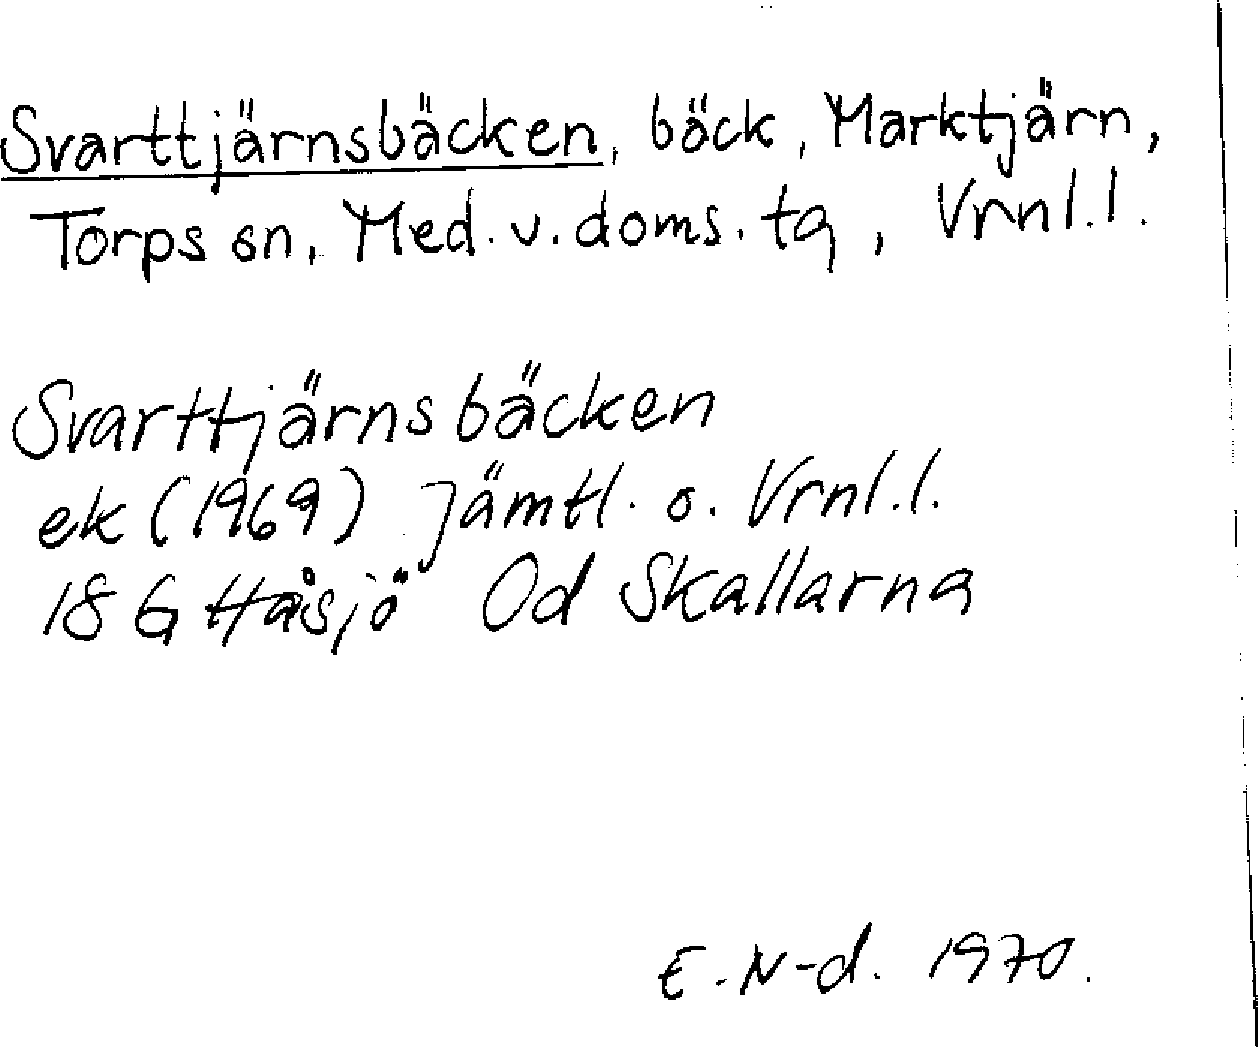 Svarttjärnsbäcken, bäck, Marktjärn,
Torps sn, Med. v. doms. tg, Vrnl.l.
Svarttjärnsbäcken
ek (1969) Jämtl. o. Vrnl.l.
18 G Håsjö 0d Skallarna
E. N-d. 1970.